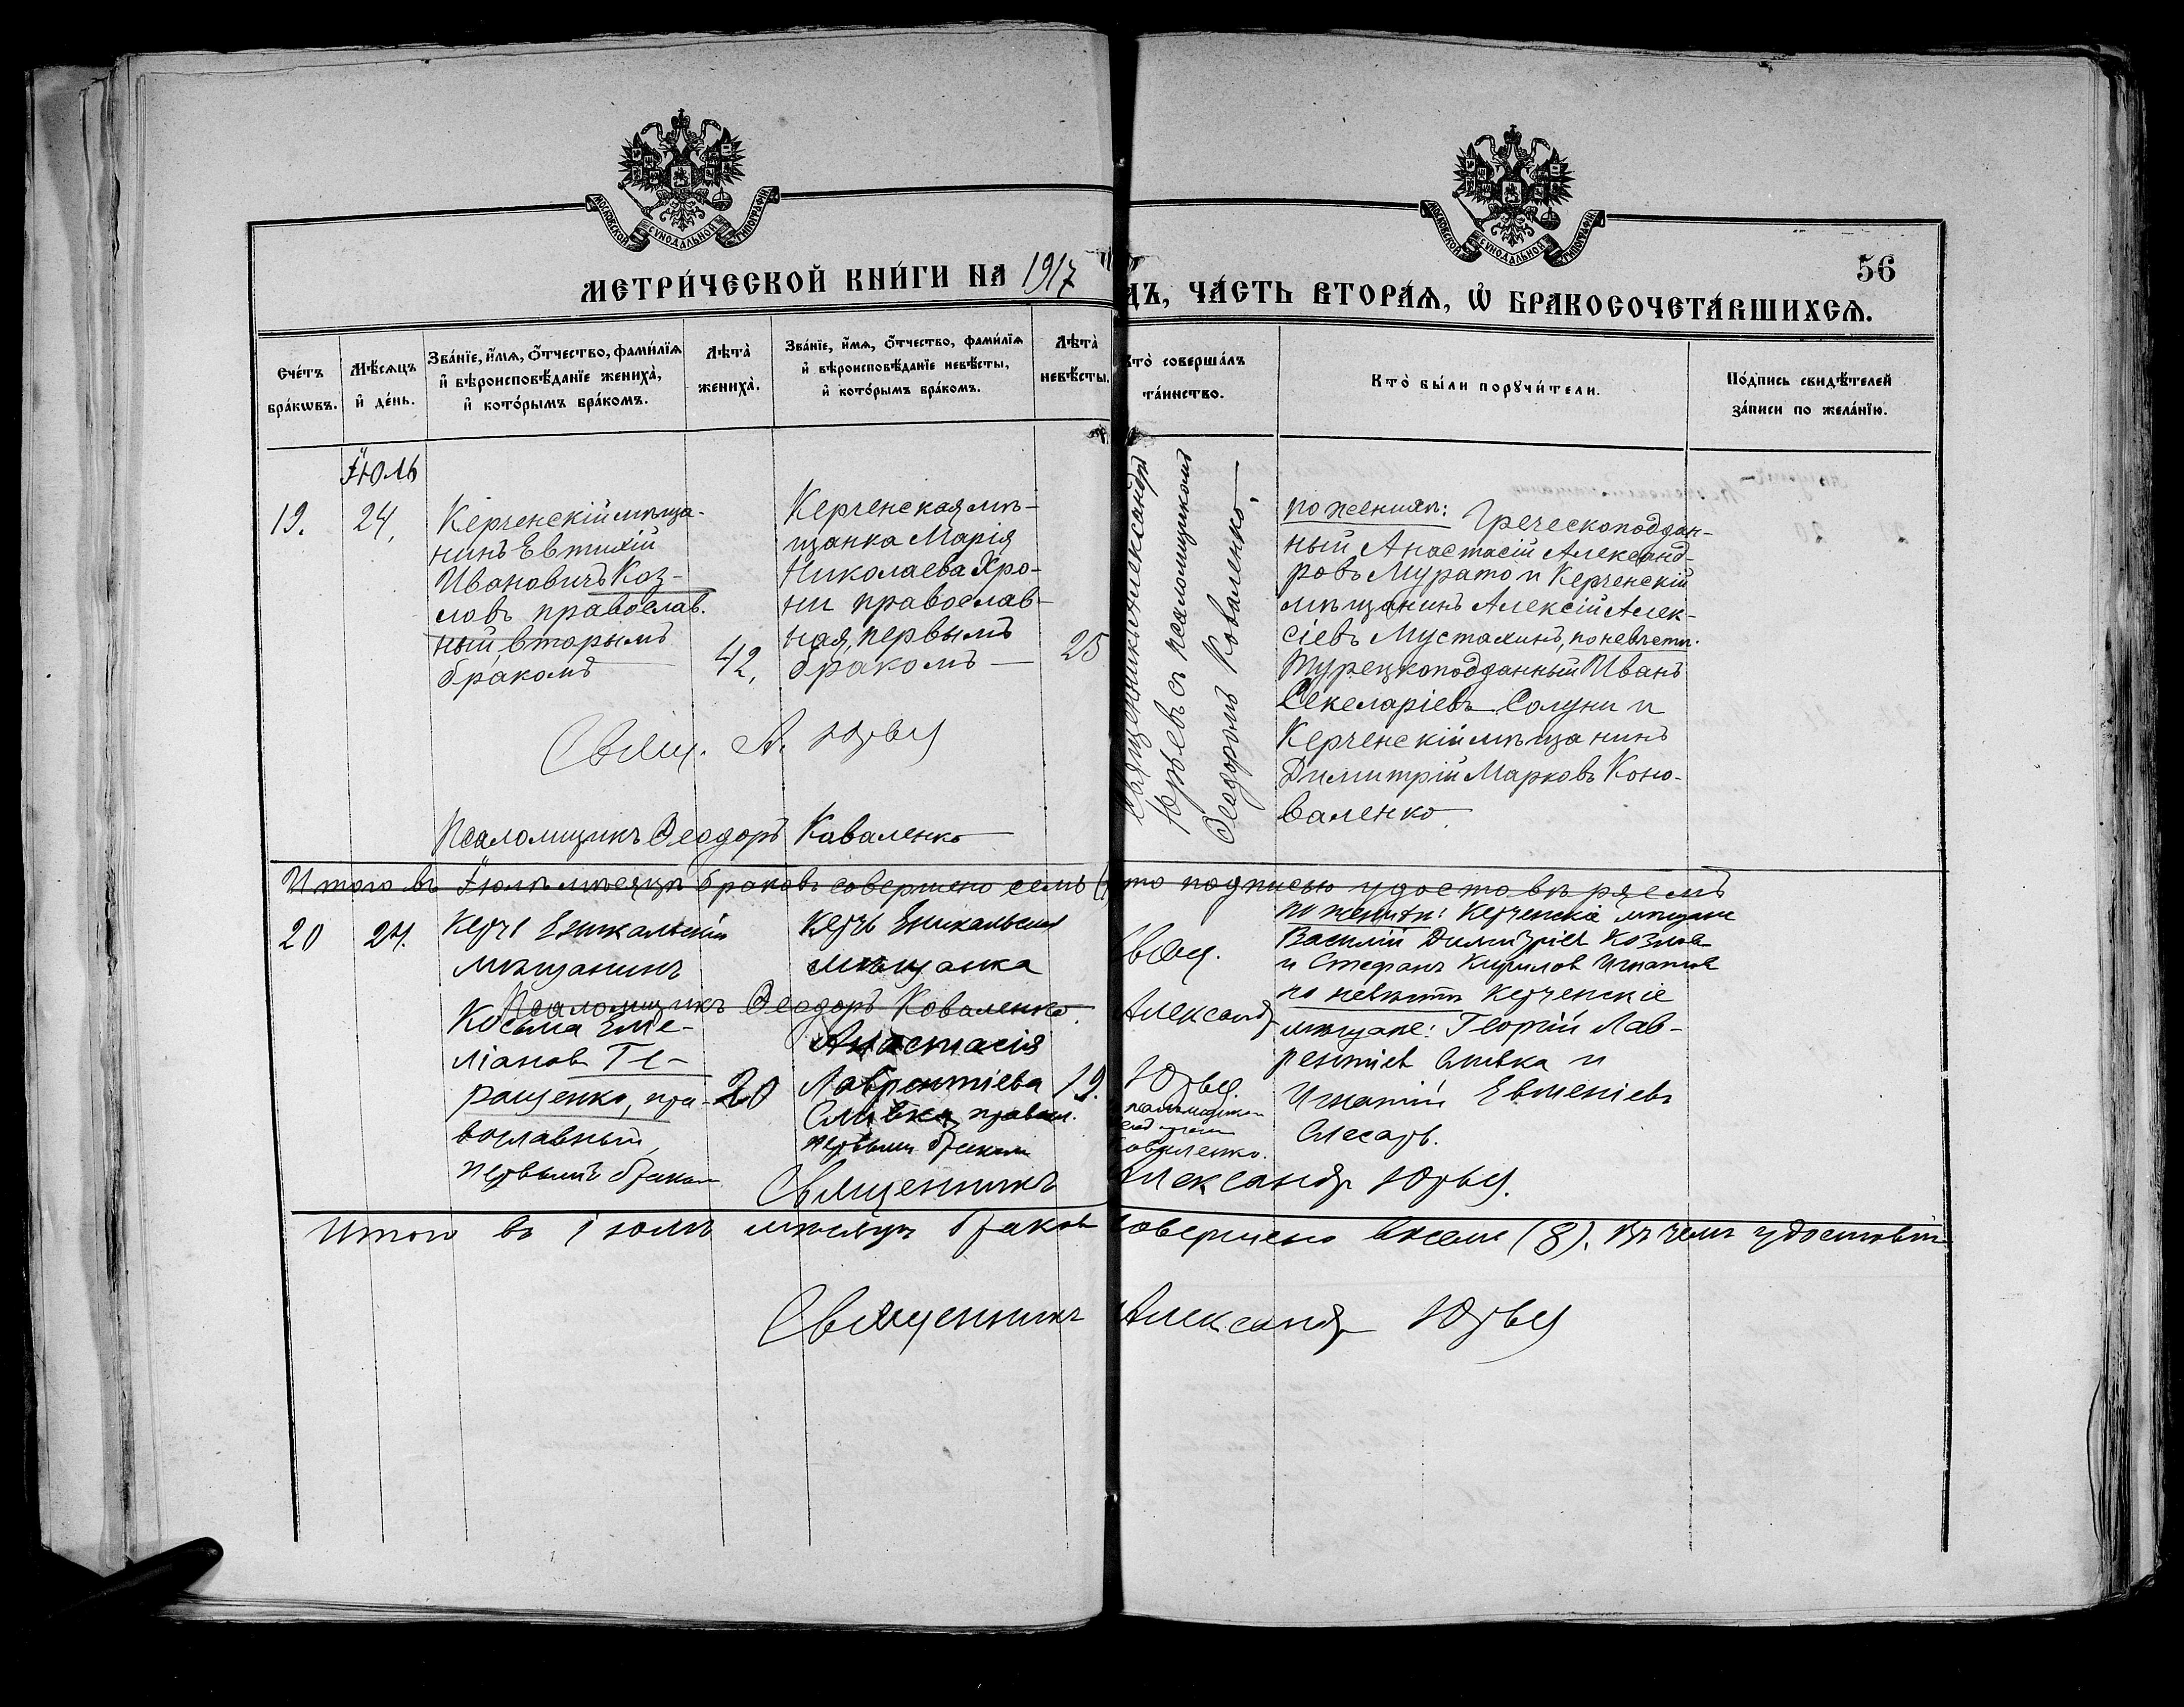 МОСКОВСКОЙ СѴНОДАЛЬНОЙ ТИПОГРАФІИ
МОСКОВСКОЙ СѴНОДАЛЬНОЙ ТИПОГРАФІИ
56
МЕТРИ́ЧЕСКОЙ КНИ́ГИ НА 1917
ДЪ, ЧА́СТЬ ВТОРА́Ѧ, Ѡ҆ БРАКОСОЧЕТА́ВШИХСѦ.
Сче́тъ
бра́кѡвъ.
Мѣ́сѧцъ
и҆ де́нь.
Зва́нїе, и҆́мѧ, ѻ҆́тчество, фами́лїѧ
и҆ вѣроисповѣ́данїе жениха̀,
и҆ кото́рымъ бра́комъ.
Лѣта̀
жениха̀.
Зва́нїе, и҆́мѧ, ѻ҆́тчество, фами́лїѧ
и҆ вѣроисповѣ́данїе невѣ́сты,
и҆ кото́рымъ бра́комъ.
Лѣта̀
невѣ́сты.
Кто̀ соверша́лъ
та́инство.
Кто̀ бы́ли порꙋчи́тели.
По́дпись свидѣ́телей
за́писи по жела́нїю.
Іюль
19.
24,
Керченскій мѣща-
нинъ Евтихій
Ивановичъ Коз-
ловъ православ.
ный, вторымъ
бракомъ
42,
Керченская мѣ-
щанка Марія
Николаева Хро-
ни православ-
ная, первымъ
бракомъ
25
Священникъ Александръ
Юрьевъ съ псаломщикомъ
Ѳеодоромъ Коваленко.
по женихѣ: Греческоподдан-
ный Анастасій Александ-
ровъ Мурато и Керченскій
мѣщанинъ Алексій Алек-
сіевъ Мустахинъ, по невѣстѣ.
Турецкоподданный Иванъ
Секеларіевъ Солуни и
Керченскій мѣщанинъ
Димитрій Марковъ Коно-
валенко.
Свящ. А. Юрьев
Псаломщикъ Ѳеодоръ Коваленко
Итого въ Іюлѣ мѣсяцѣ браковъ совершено семь (
что подписью удостовѣряемъ
20
24.
Керчь Еникальскій
мѣщанинъ
Псаломщикъ Ѳеодоръ Коваленко.
Косьма Еме-
ліанов Те-
ращенко, пра-
вославный,
первымъ браком
20
Керчь Еникальская
мѣщанка
Анастасія
Лаврентіева
Сливка, правосл.
первымъ браком
19.
Свящ.
Александр
Юрьев.
псаломщиком
Коваленко.
по женихѣ: Керченскіе мѣщане
Василій Димитріев Козлов
и Стефанъ Кирилов Игнатов
по невѣстѣ Керченскіе
мѣщане: Георгій Лав-
рентіев Сливка и
Игнатій Евменіевъ
Слесарь.
Священникъ Александр Юрьев.
Итого въ Іюлѣ мѣсяцѣ браков совершено восемь (8). Въ чемъ удостовѣр
Священникъ Александр Юрьев